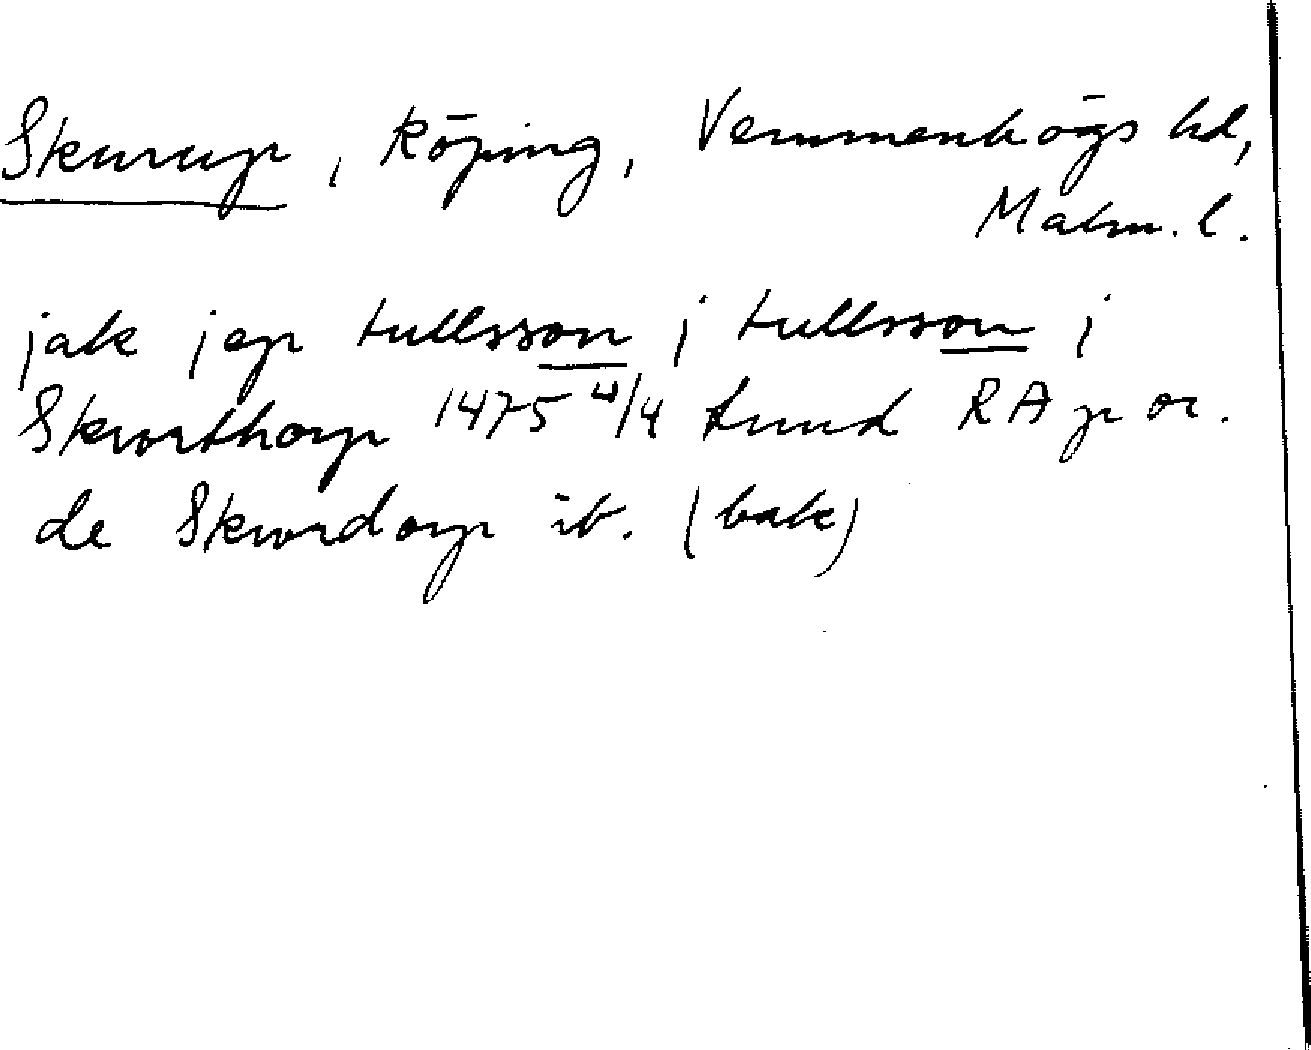 Skurup, köping, Vemmenhögs hd,
Malm. l.
jak jep tullsson j tullsson j
Skvrthorp 1475 4/4 Lund RA p or.
de Skvrdorp ib. (bak)